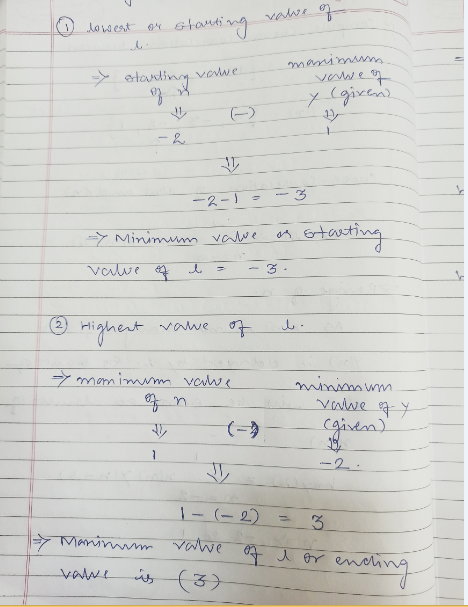 ① lowest or starting value of
l.
⇒ starting value maximum
of n value of
y (given)
⇓ (-) ⇓
-2 1
⇓
-2-1 = -3
⇒ Minimum value or starting
value of l = -3.
② Highest value of l.
⇒ maximum value minimum
of n value of y
(given)
⇓ (-) ⇓
1 -2.
⇓
1-(-2) = 3
⇒ Maximum value of l or ending
value is (3)